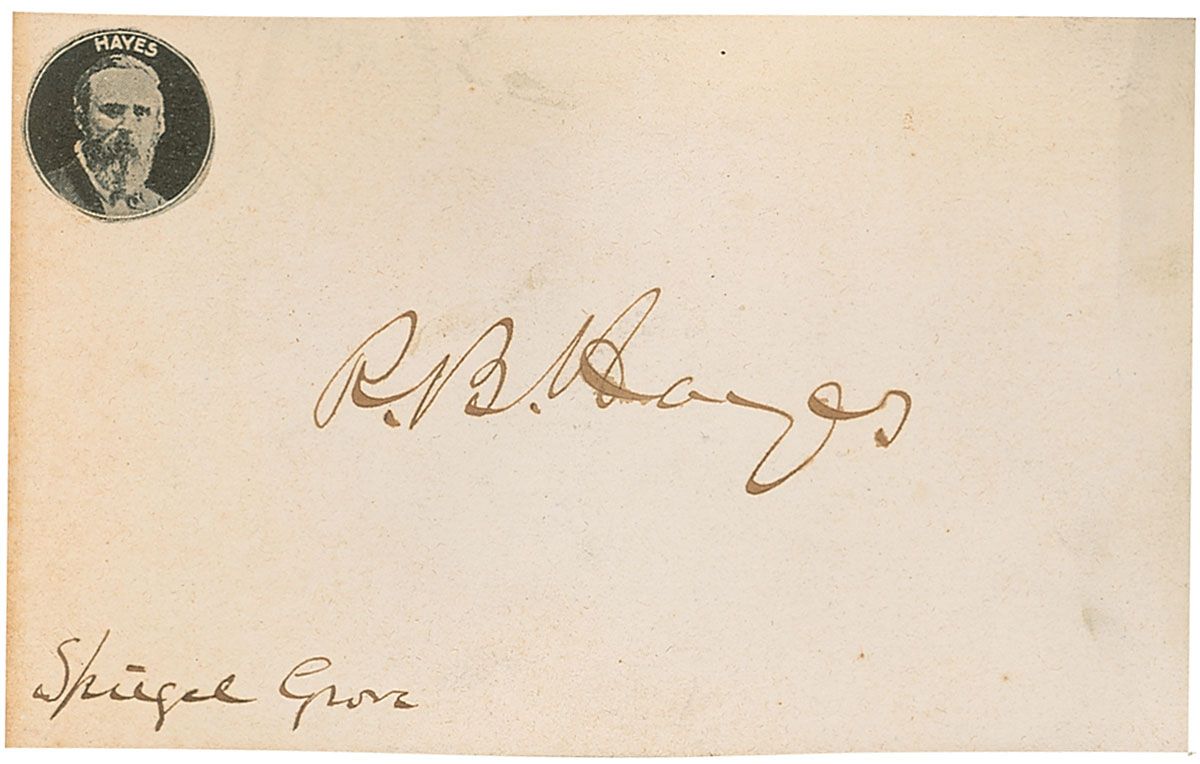 HAYES
R. B. Hayes
Spiegel Grove